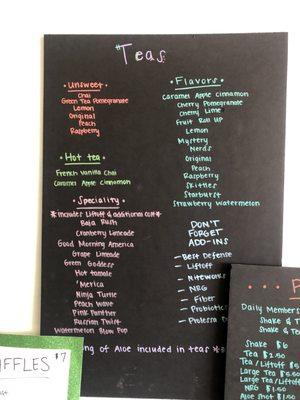 Teas
• Unsweet •
Chai
Green Tea Pomegranate
Lemon
Original
Peach
Raspberry
• Hot tea •
French Vanilla Chai
Caramel Apple Cinnamon
• Speciality •
*includes Liftoff & additional cost*
Baja Rush
Cranberry Limeade
Good Morning America
Grape Limeade
Green Goddess
Hot tamale
'Merica
Ninja Turtle
Peach wave
Pink Panther
Russian Twist
Watermelon Blow Pop
• Flavors •
Caramel Apple Cinnamon
Cherry Pomegranate
Cherry Lime
Fruit Roll Up
Lemon
Mystery
Nerds
Original
Peach
Raspberry
Skittles
Starburst
Strawberry Watermelon
DON'T
FORGET
ADD-INS
- Best Defense
- Liftoff
- Niteworks
- NRG
- Fiber
- Probiotic
- Protessa
ng of Aloe included in teas *
FFLES $7
Daily Members
Shake & T
Shake & Te
Shake $6
Tea $2.50
Tea/Liftoff $5
Large Tea $5.50
Large Tea/Lifto
NRG $1
Aloe Shot $1